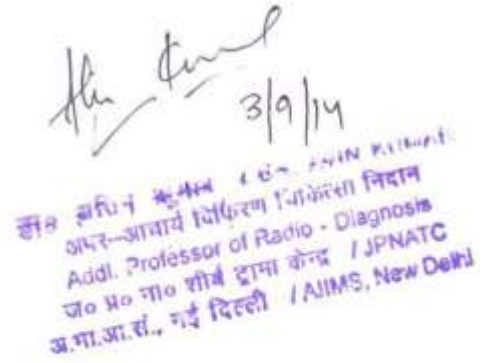 3/9/14
डा०
अपर-आचार्य विकिरण चिकित्सा निदान
Addl. Professor of Radio - Diagnosis
ज० प्र० ना० शीर्ष ट्रामा केन्द्र / JPNATC
अ.भा.आ.सं., नई दिल्ली / AIIMS, New Delhi